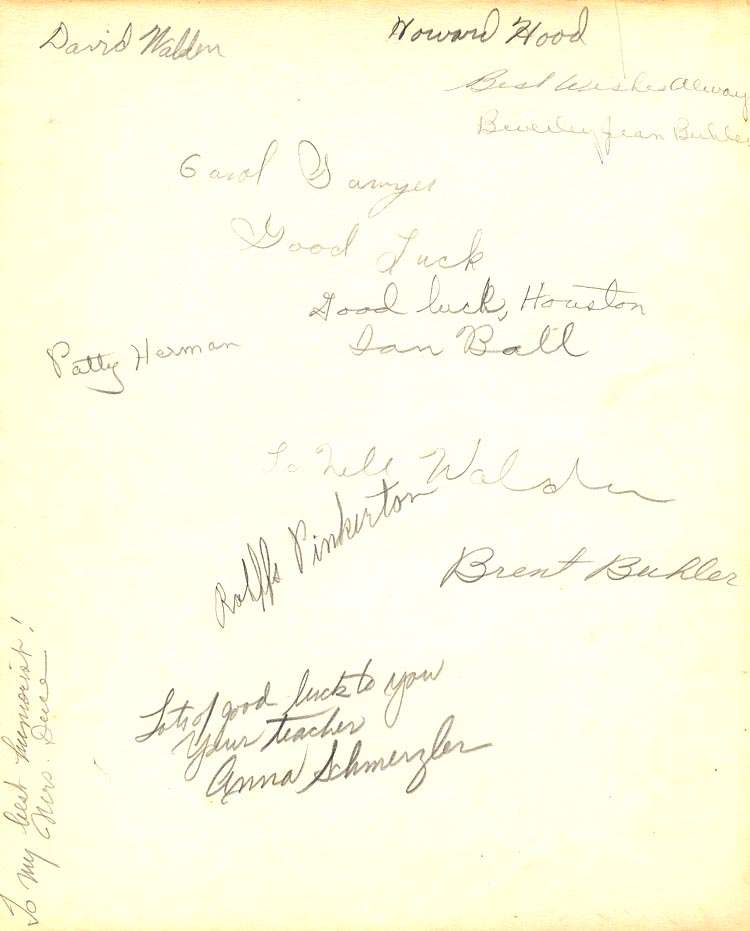 David Walden
Howard Hood
Best Wishes Alway
Beverley Jean Buhler
Carol Sawyer
Good Luck
Good luck, Houston
Ian Ball
Patty Herman
La Nell Walden
Rolffs Pinkerton
Brent Buhler
Lots of good luck to you
Your teacher
Anna Schmerzler
To my best humorist!
Mrs.